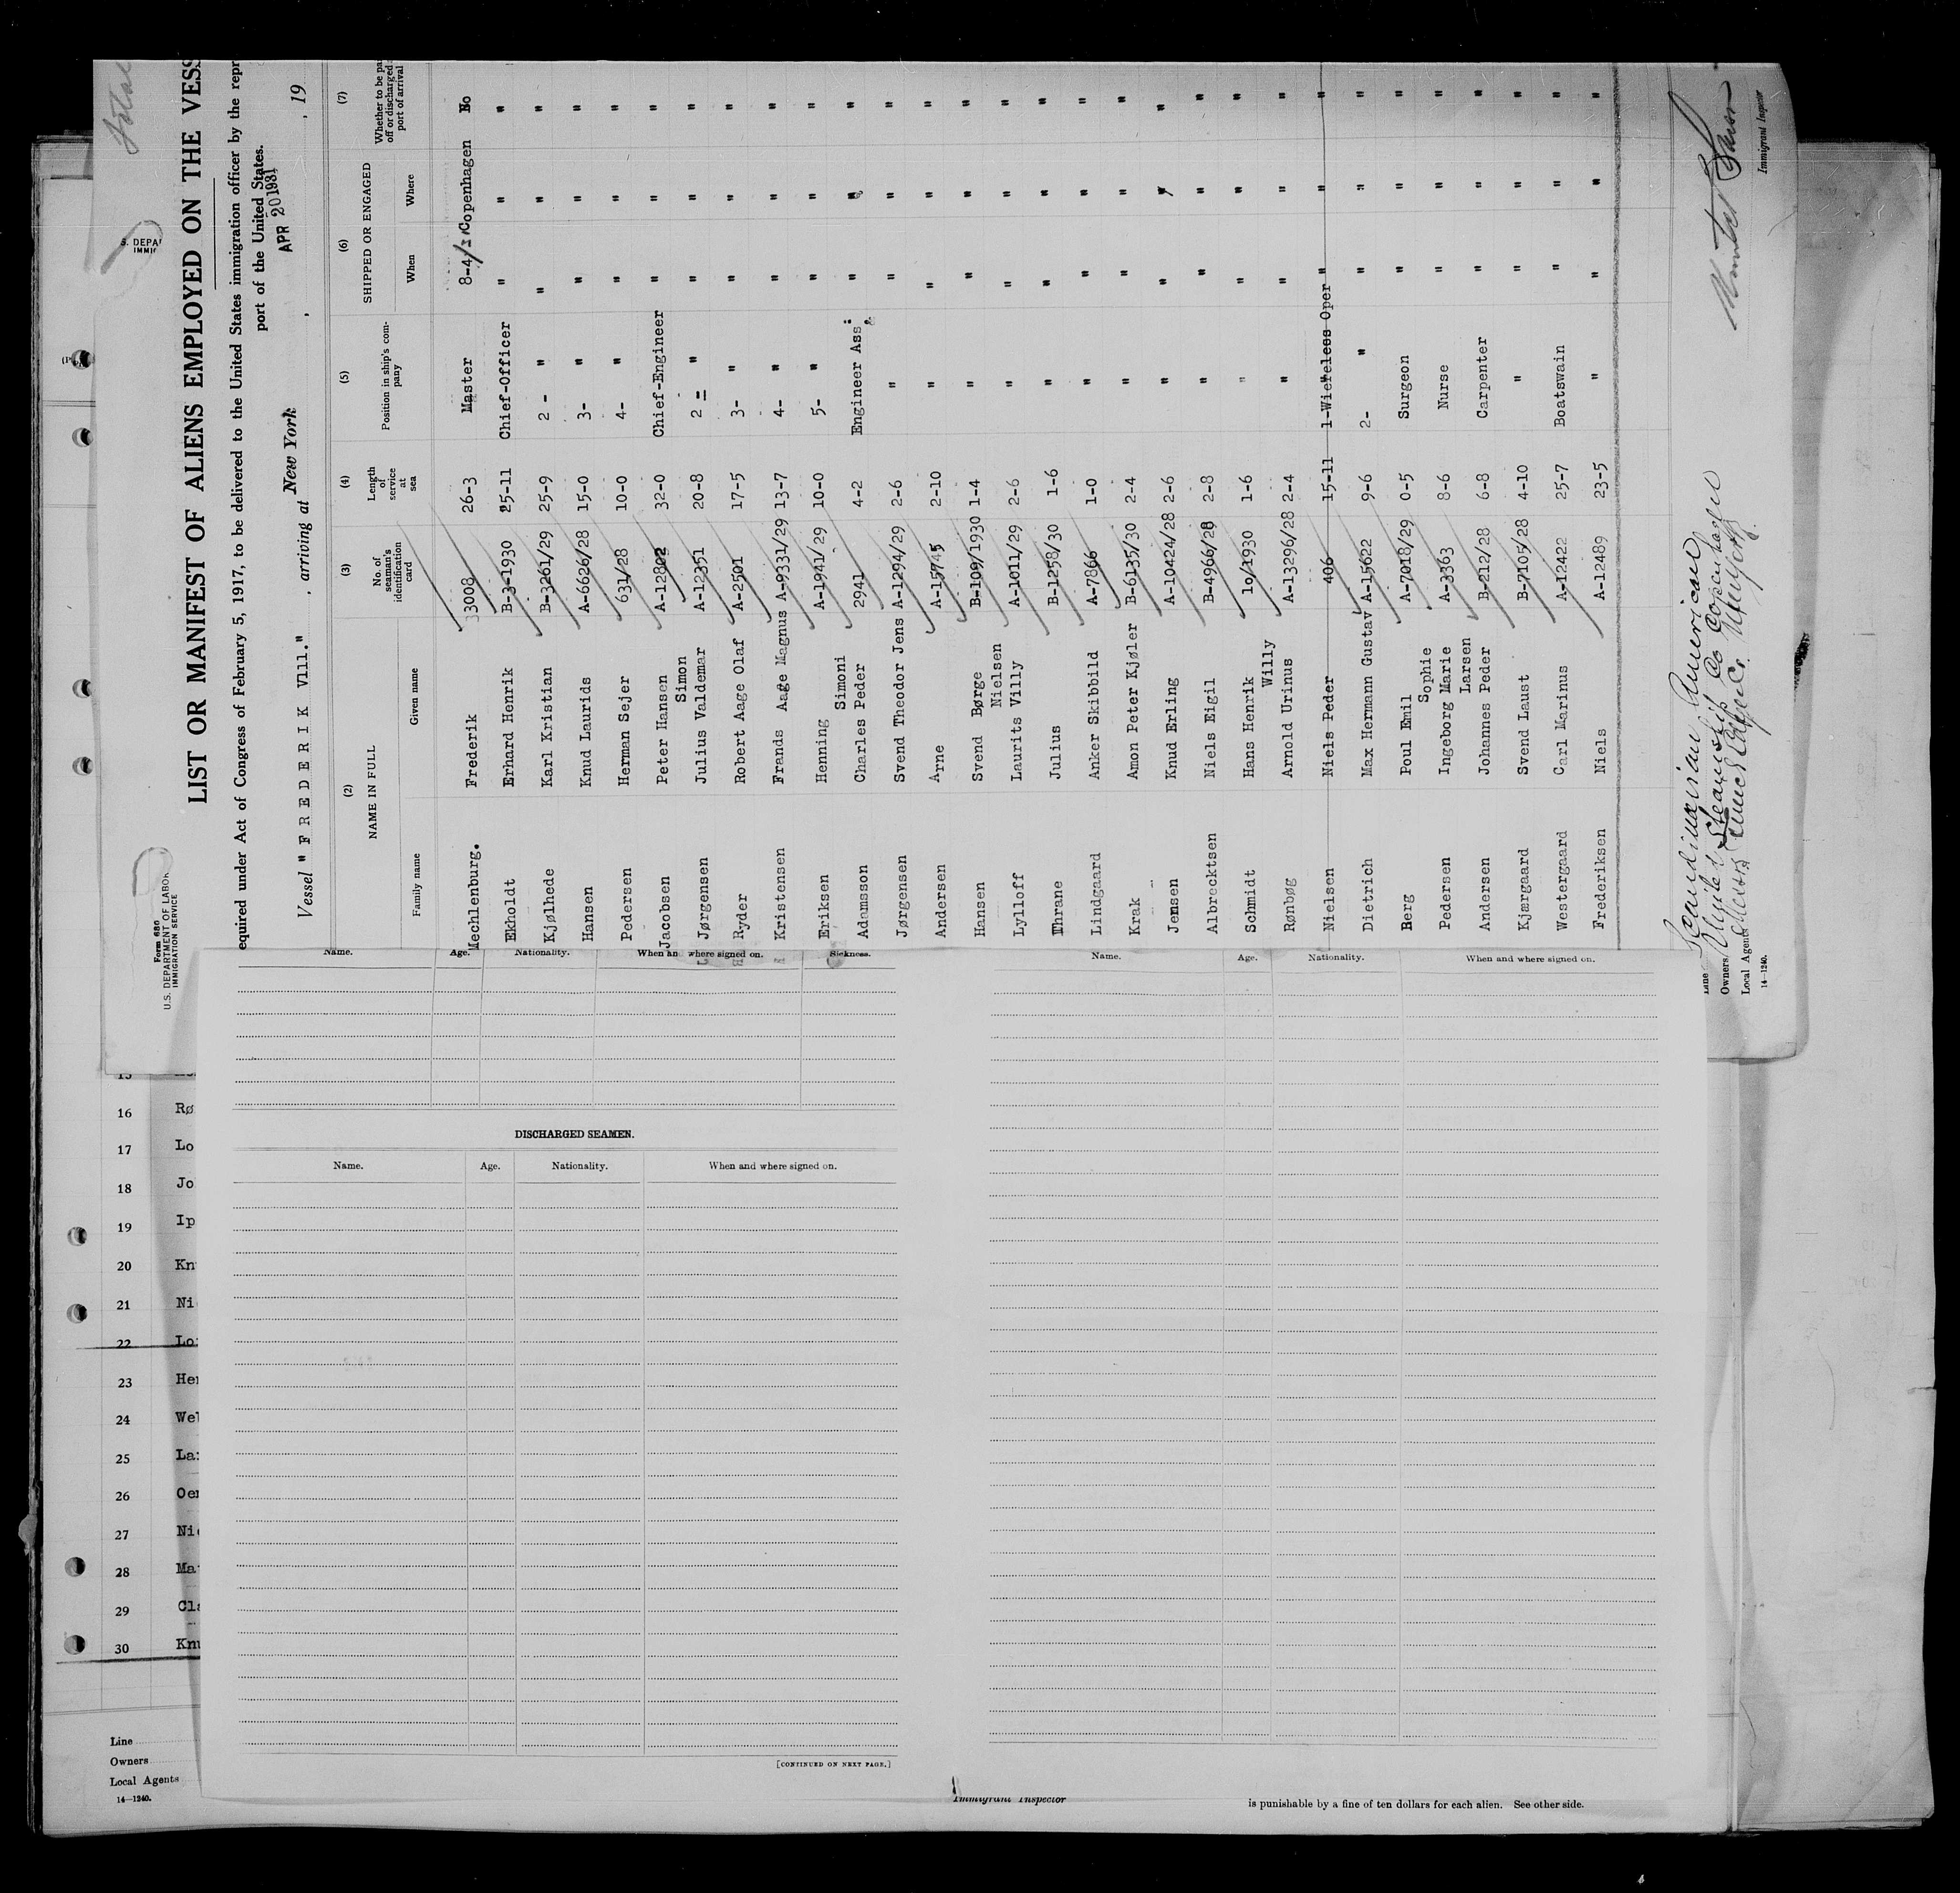 Form 680
U.S. DEPARTMENT OF LABOR
IMMIGRATION SERVICE
S. DEPA
IMMI
Total
LIST OR MANIFEST OF ALIENS EMPLOYED ON THE VESS
equired under Act of Congress of February 5, 1917, to be delivered to the United States immigration officer by the repr
port of the United States.
Vessel "FREDERIK Vlll.", arriving at New York, APR 20 1931, 19
(2) NAME IN FULL
Family name Given name
(3) No. of seaman's identification card
(4) Length of service at sea
(5) Position in ship's company
(6) SHIPPED OR ENGAGED
When Where
(7) Whether to be pa
off or discharged
port of arrival
Mechlenburg. Frederik 33008 26-3 Master 8-4/ Copenhagen No
Ekholdt Erhard Henrik B-3-1930 25-11 Chief-Officer " " "
Kjølhede Karl Kristian B-3261/29 25-9 2 - " " " "
Hansen Knud Laurids A-6696/28 15-0 3- " " " "
Pedersen Herman Sejer 631/28 10-0 4- " " " "
Jacobsen Peter Hansen A-12802 32-0 Chief-Engineer " " "
Jørgensen Julius Valdemar Simon A-12351 20-8 2 = " " " "
Ryder Robert Aage Olaf A-2501 17-5 3- " " " "
Kristensen Frands Aage Magnus A-9331/29 13-7 4- " " " "
Eriksen Henning A-1941/29 10-0 5- " " " "
Adamsson Charles Peder Simoni 2941 4-2 Engineer Ass: " " "
Jørgensen Svend Theodor Jens A-1294/29 2-6 " " " "
Andersen Arne A-15745 2-10 " " " "
Hansen Svend Børge B-109/1930 1-4 " " " "
Lylloff Laurits Villy Nielsen A-1011/29 2-6 " " " "
Thrane Julius B-1258/30 1-6 " " " "
Lindgaard Anker Skibbild A-7866 1-0 " " " "
Krak Amon Peter Kjøler B-6135/30 2-4 " " " "
Jensen Knud Erling A-10424/28 2-6 " " " "
Albrecktsen Niels Eigil B-4966/28 2-8 " " " "
Schmidt Hans Henrik 10/1930 1-6 " " " "
Rønbøg Arnold Urinus Willy A-13296/28 2-4 " " " "
Nielsen Niels Peder 406 15-11 1-Wireless Oper " " "
Dietrich Max Hermann Gustav A-15622 9-6 2- " " " "
Berg Poul Emil A-7018/29 0-5 Surgeon " " "
Pedersen Ingeborg Marie Sophie A-3363 8-6 Nurse " " "
Andersen Johannes Peder Larsen B-212/28 6-8 Carpenter " " "
Kjærgaard Svend Laust B-7105/28 4-10 " " " "
Westergaard Carl Marinus A-12422 25-7 Boatswain " " "
Frederiksen Niels A-12489 23-5 " " " "
Line Scandinavian American
Owners United Steamship Co Copenhagen
Local Agents
14—1240.
Immigrant Inspector
Name. Age. Nationality. When an where signed on. Sickness.
Name. Age. Nationality. When and where signed on.
DISCHARGED SEAMEN.
Name. Age. Nationality. When and where signed on.
[CONTINUED ON NEXT PAGE.]
15
16 Rø
17 Lo
18 Jo
19 Ip
20 Kn
21 Ni
22 Lo
23 He
24 Wel
25 La
26 Oe
27 Ni
28 Ma
29 Cl
30 Kn
Line
Owners
Local Agents
14—1240.
Immigrant Inspector
is punishable by a fine of ten dollars for each alien. See other side.